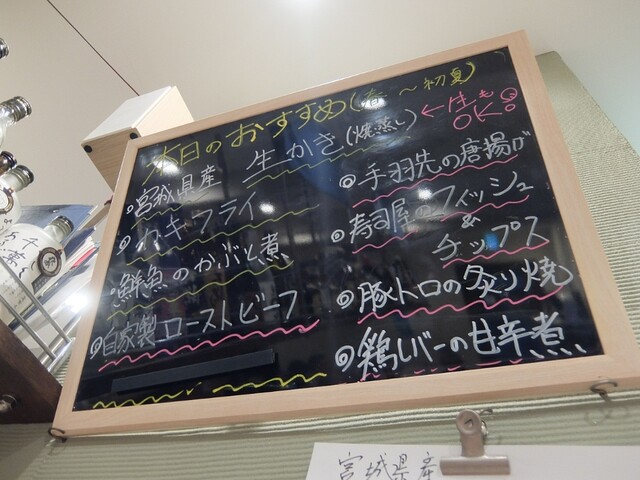 本日のおすすめ(春〜初夏)
宮城県産 生かき(焼蒸し) ←生もOK!
◎カキフライ
◎鮮魚のかぶと煮
◎自家製ローストビーフ
◎手羽先の唐揚げ
◎寿司屋のフィッシュ
&
チップス
◎豚トロの炙り焼
◎鶏レバーの甘辛煮
宮城県産